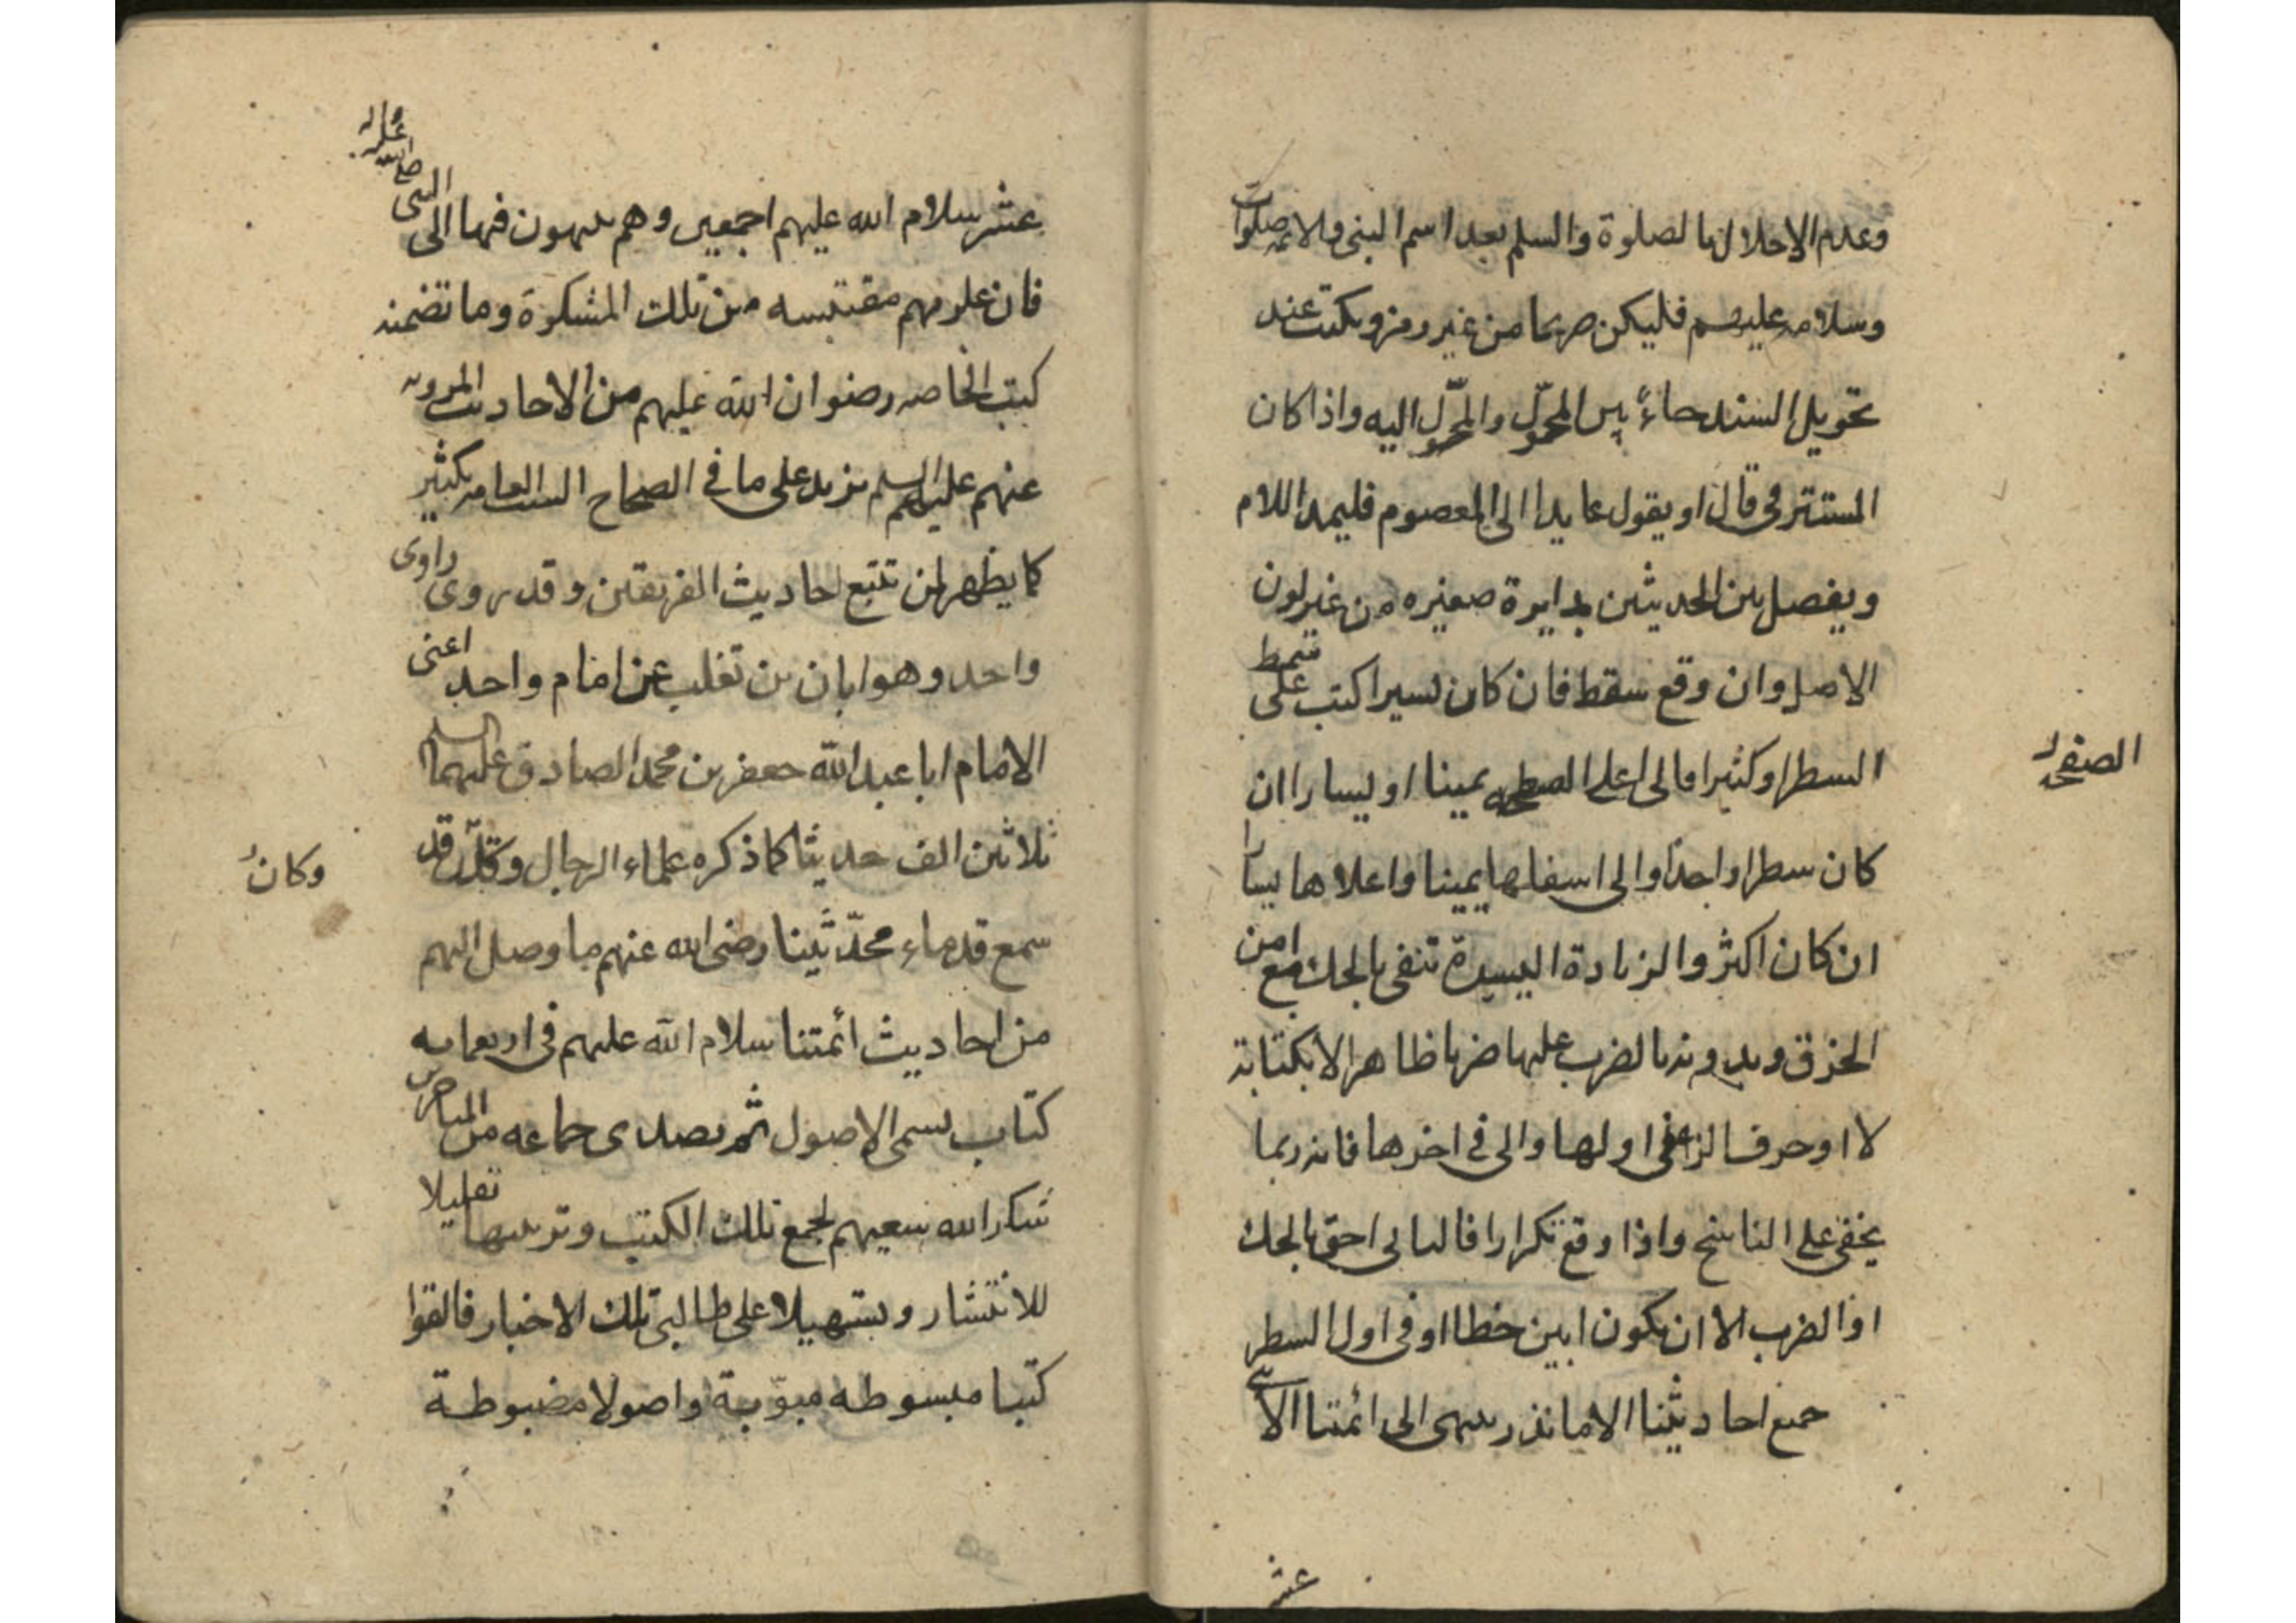 وعدم الاخلال بالصلوة والسلم بعد اسم النبى والائمه صلوات
وسلامه عليهم فليكن صريحا من غير رمز ويكتب عند
تحويل السند حاءً بين المحوّل والمحوّل اليه واذا كان
المستتر فى قال او يقول عايدا الى المعصوم فليمد اللام
ويفصل بين الحديثين بدايرة صغيره من غير لون
الاصل وان وقع سقط فان كان يسيرا كتب على سمط
السطر او كثيرا فالى اعلى الصفحه يمينا او يسارا ان
الصفحه
كان سطرا واحدًا والى اسفلها يمينا واعلاها يسارا
ان كان اكثر والزيادة اليسيرة تنفى بالحك مع امن
الخرق وبدونه بالضرب عليها ضربا ظاهرا لا بكتابة
لا او حرف الزاء فى اولها والى فى اخرها فانه ربما
يخفى على الناسخ واذا وقع تكرار فالثانى احق بالحك
او الضرب الا ان يكون ابين خطا او فى اول السطر
جميع احاديثنا الا ما نذر ينتهى الى ائمتنا الاثنى
عشر
عشر سلام الله عليهم اجمعين وهم ينتهون فيها الى النبى صلى الله عليه واله
فان علومهم مقتبسه من تلك المشكوة وما تضمنه
كتب الخاصه رضوان الله عليهم من الاحاديث المرويه
عنهم عليهم السلم يزيد على ما فى الصحاح الست العامه بكثير
كما يظهر لمن تتبع احاديث الفريقين وقد روى راوى
واحد وهو ابان بن تغلب عن امام واحد اعنى
الامام ابا عبد الله جعفر بن محمد الصادق عليهما السلم
ثلاثين الف حديثا كما ذكره علماء الرجال وكان قد
وكان
سمع قدماء محدّثينا رضى الله عنهم ما وصل اليهم
من احاديث ائمتنا سلام الله عليهم فى اربعمايه
كتاب يسمى الاصول ثم تصدى جماعه من المتاخرين
شكر الله سعيهم لجمع تلك الكتب وترتيبها تقليلا
للانتشار وتسهيلا على طالبى تلك الاخبار فالفوا
كتبا مبسوطه مبوّبة واصولا مضبوطة